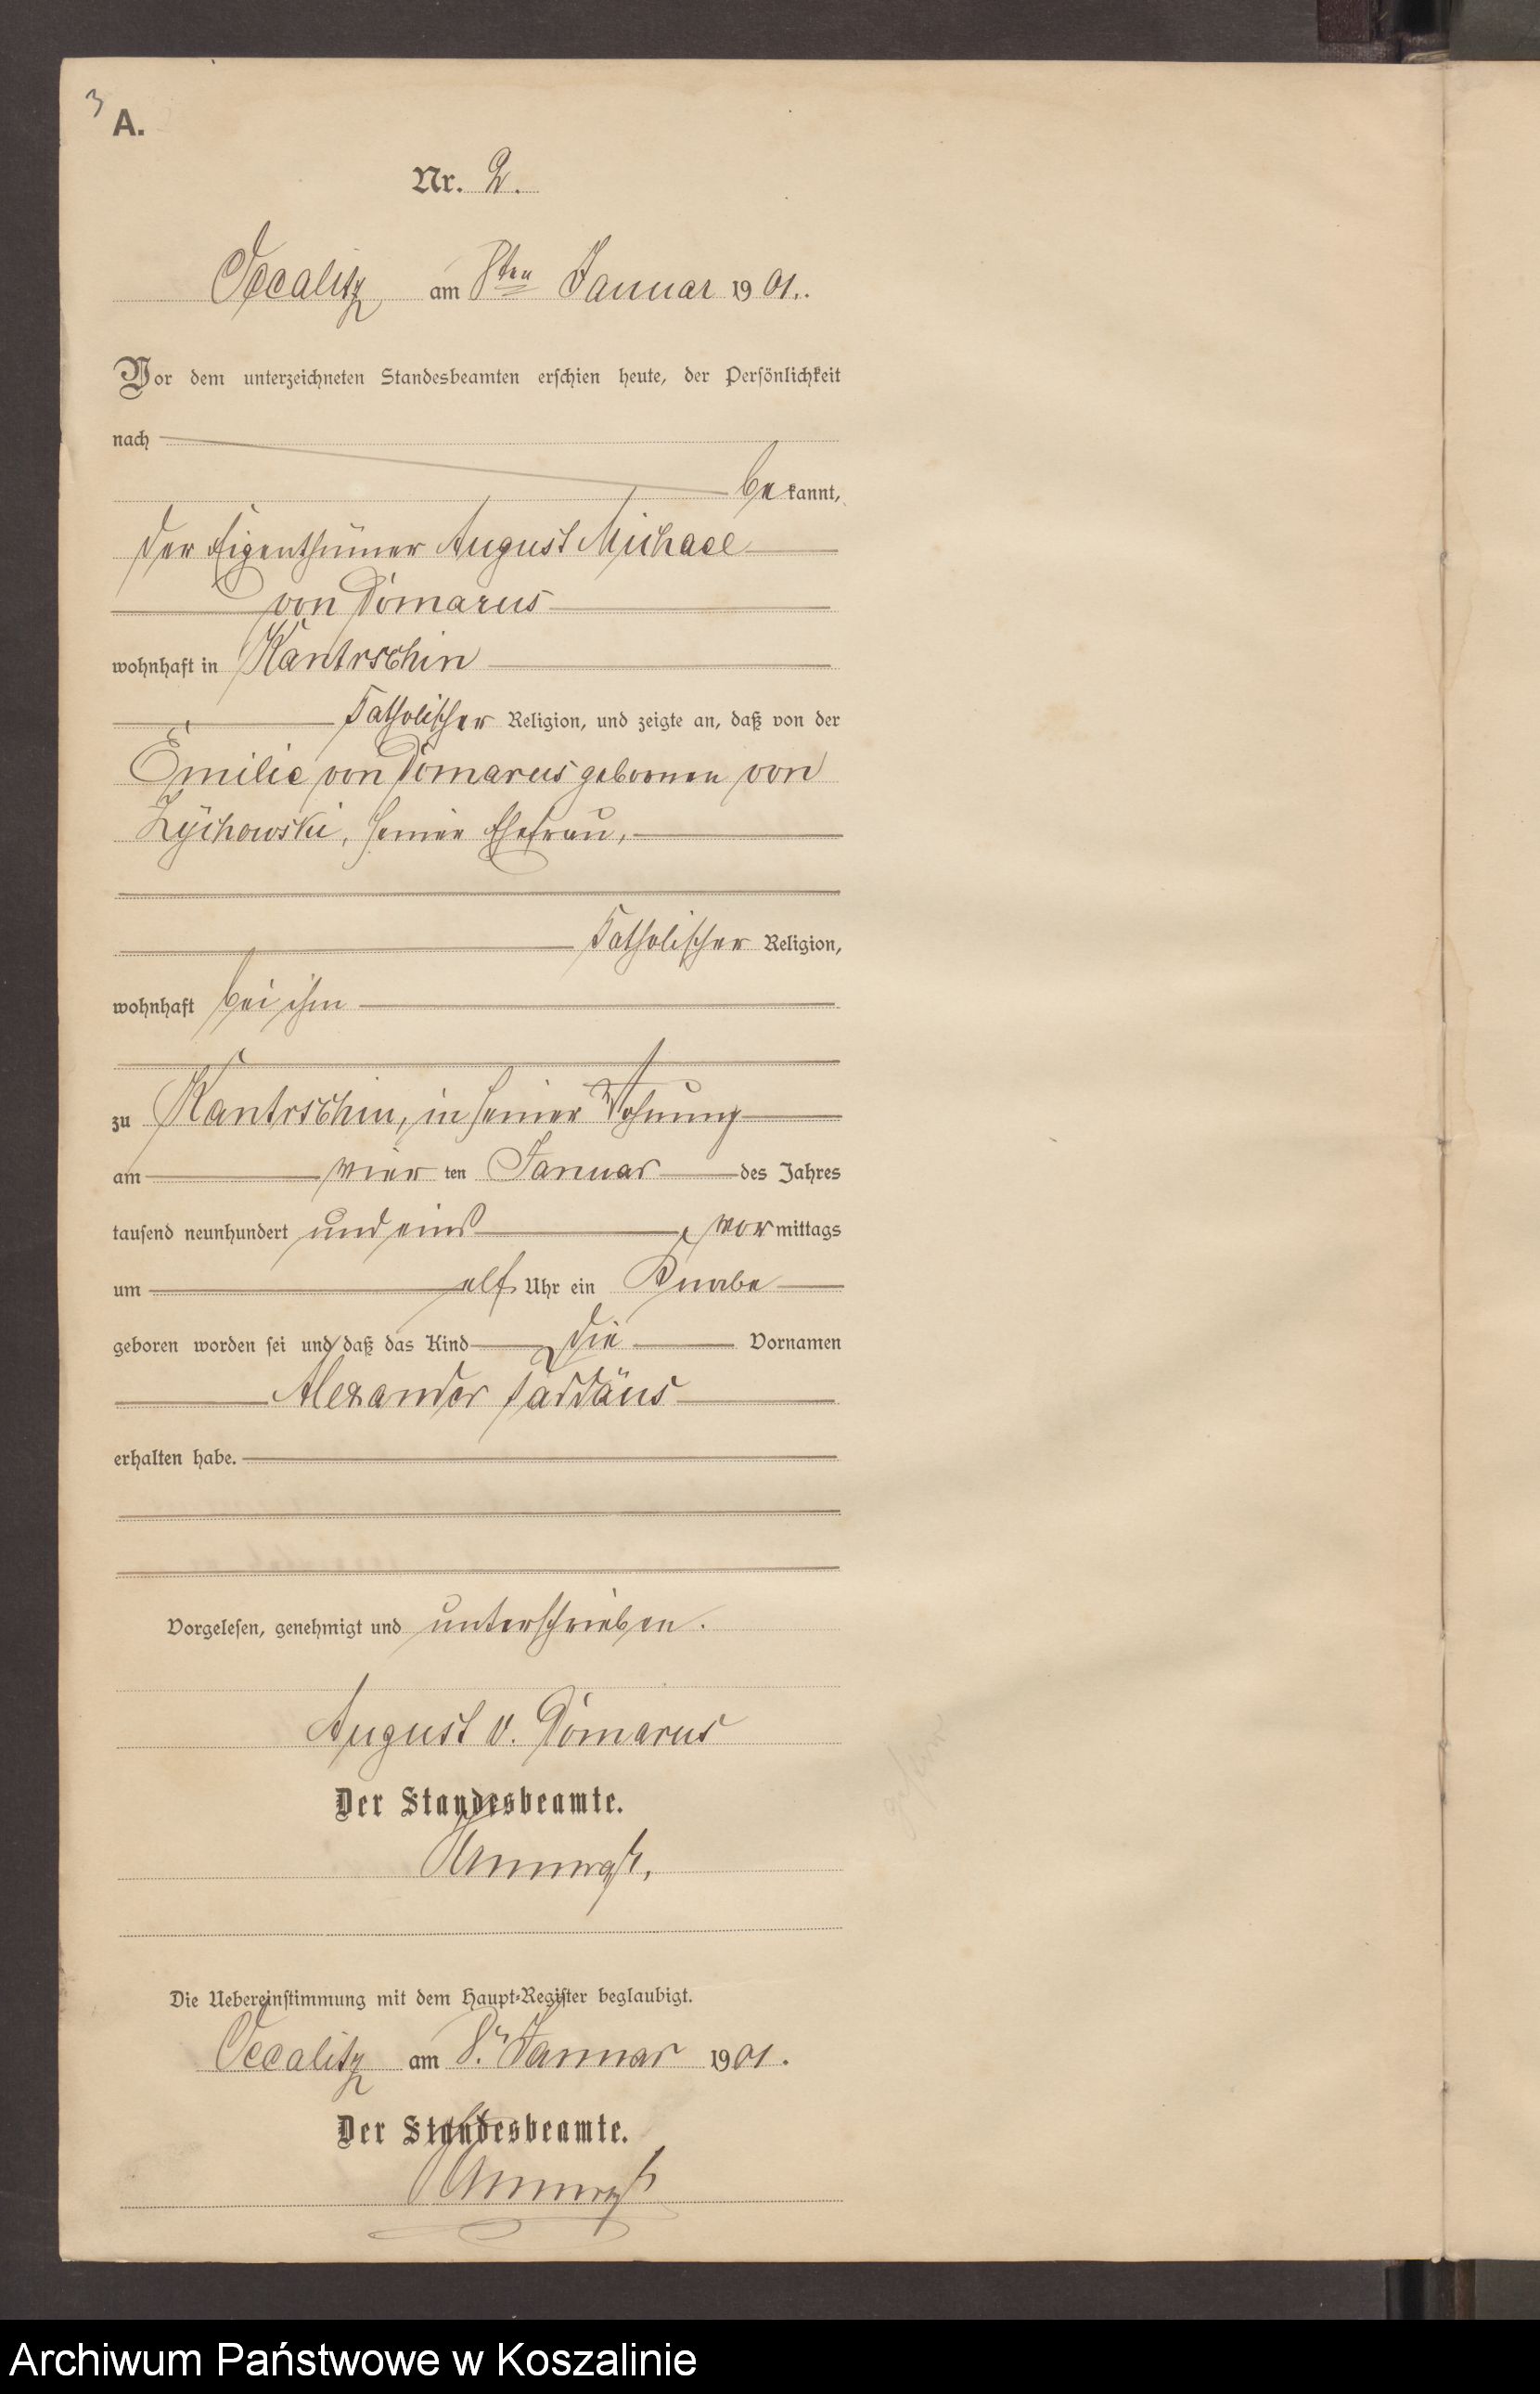 3
A.
Nr. 2.
Occalitz am 8ten Januar 1901.
Vor dem unterzeichneten Standesbeamten erschien heute, der Persönlichkeit
nach
bekannt,
der Eigenthümer August Michael
von Dömarus
wohnhaft in Kantrschin
katholischer Religion, und zeigte an, daß von der
Emilie von Dömarus gebornen von
Zÿchowski, seiner Ehefrau,
katholischer Religion,
wohnhaft bei ihm
zu Kantrschin, in seiner Wohnung
am vier ten Januar des Jahres
tausend neunhundert und eins, vormittags
um elf Uhr ein Knabe
geboren worden sei und daß das Kind die Vornamen
Alexander Taddäus
erhalten habe.
Vorgelesen, genehmigt und unterschrieben.
August v. Dömarus
Der Standesbeamte.
Die Uebereinstimmung mit dem Haupt-Register beglaubigt.
Occalitz am 8. Januar 1901.
Der Standesbeamte.
Archiwum Państwowe w Koszalinie